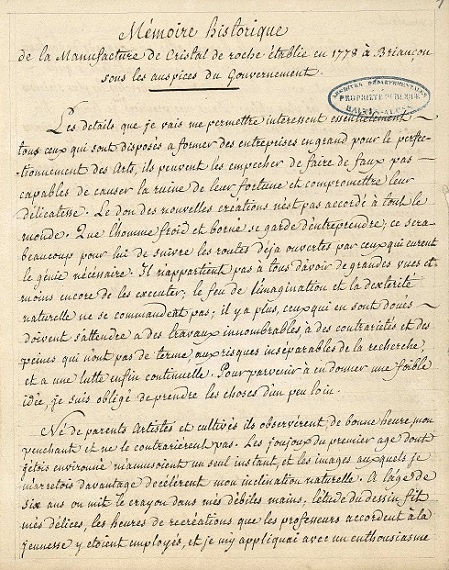 Mémoire historique
de la Manufacture de Cristal de roche établie en 1778 à Briançon
sous les auspices du Gouvernement.
ARCHIVES DÉPARTEMENTALES
PROPRIÉTÉ PUBLIQUE
HAUTES-ALPES
Les details que je vais me permettre interessent essentielement
tous ceux qui sont disposés a former des entreprises en grand pour le perfec-
-tionnement des Arts, ils peuvent les empecher de faire de faux pas
capables de causer la ruine de leur fortune et compromettre leur
délicatesse. Le don des nouvelles créations n'est pas accordé à tout le
monde. Que l'homme froid et borné se garde d'entreprendre; ce sera
beaucoup pour lui de suivre les routes déja ouvertes par ceux qui eurent
le génie nécenaire. Il n'appartient pas à tous d'avoir de grandes vues et
moins encore de les executer; le feu de l'imagination et la dextérité
naturelle ne se commandent pas; il y a plus, ceux qui en sont doués
doivent s'attendre a des travaux innombrables, a des contrariétés et des
peines qui n'ont pas de terme, aux risques inséparables de la recherche,
et a une lutte enfin continuelle. Pour parvenir à en donner une foible
idée, je suis obligé de prendre les choses d'un peu loin.
Né de parents Artistes et cultivés ils observérent de bonne heure mon
penchant et ne le contrarièrent pas. Les joujoux du premier age dont
j'etois environné m'amusoient un seul instant, et les images auxquels je
m'arretois davantage decelèrent mon inclination naturelle. A l'âge de
six ans on mit le crayon dans mes débiles mains, l'étude du dessin fit
mes délices, les heures de recréations que les profeseurs accordent à la
jeunesse y etoient employés, et je m'y appliquai avec un enthousiasme